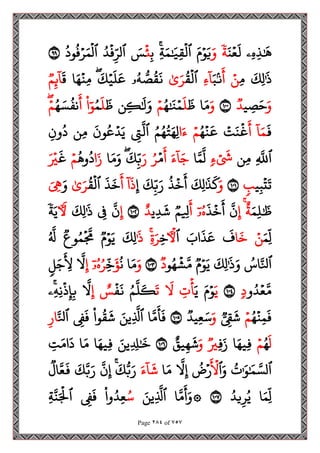 هَٰذِهِۦ لَعْنَةً وَيَوْمَ ٱلْقِيَٰمَةِ ۚ بِئْسَ ٱلرِّفْدُ ٱلْمَرْفُودُ ٩٩
ذَٰلِكَ مِنْ أَنۢبَآءِ ٱلْقُرَىٰ نَقُصُّهُۥ عَلَيْكَ ۖ مِنْهَا قَآئِمٌ
وَحَصِيدٌ ١٠٠ وَمَا ظَلَمْنَٰهُمْ وَلَٰكِن ظَلَمُوٓا۟ أَنفُسَهُمْ ۖ
فَمَآ أَغْنَتْ عَنْهُمْ ءَالِهَتُهُمُ ٱلَّتِى يَدْعُونَ مِن دُونِ
ٱللَّهِ مِن شَىْءٍ لَّمَّا جَآءَ أَمْرُ رَبِّكَ ۖ وَمَا زَادُوهُمْ غَيْرَ
تَتْبِيبٍ ١٠١ وَكَذَٰلِكَ أَخْذُ رَبِّكَ إِذَآ أَخَذَ ٱلْقُرَىٰ وَهِىَ
ظَٰلِمَةٌ ۚ إِنَّ أَخْذَهُۥٓ أَلِيمٌ شَدِيدٌ ١٠٢ إِنَّ فِى ذَٰلِكَ لَءَايَةً
لِّمَنْ خَافَ عَذَابَ ٱلْءَاخِرَةِ ۚ ذَٰلِكَ يَوْمٌ مَّجْمُوعٌ لَّهُ
ٱلنَّاسُ وَذَٰلِكَ يَوْمٌ مَّشْهُودٌ ١٠٣ وَمَا نُؤَخِّرُهُۥٓ إِلَّا لِأَجَلٍ
مَّعْدُودٍ ١٠٤ يَوْمَ يَأْتِ لَا تَكَلَّمُ نَفْسٌ إِلَّا بِإِذْنِهِۦ ۚ
فَمِنْهُمْ شَقِىٌّ وَسَعِيدٌ ١٠٥ فَأَمَّا ٱلَّذِينَ شَقُوا۟ فَفِى ٱلنَّارِ
لَهُمْ فِيهَا زَفِيرٌ وَشَهِيقٌ ١٠٦ خَٰلِدِينَ فِيهَا مَا دَامَتِ
ٱلسَّمَٰوَٰتُ وَٱلْأَرْضُ إِلَّا مَا شَآءَ رَبُّكَ ۚ إِنَّ رَبَّكَ فَعَّالٌ
لِّمَا يُرِيدُ ١٠٧ ۞ وَأَمَّا ٱلَّذِينَ سُعِدُوا۟ فَفِى ٱلْجَنَّةِ
Page ٢٨٤ of ٧٥٧